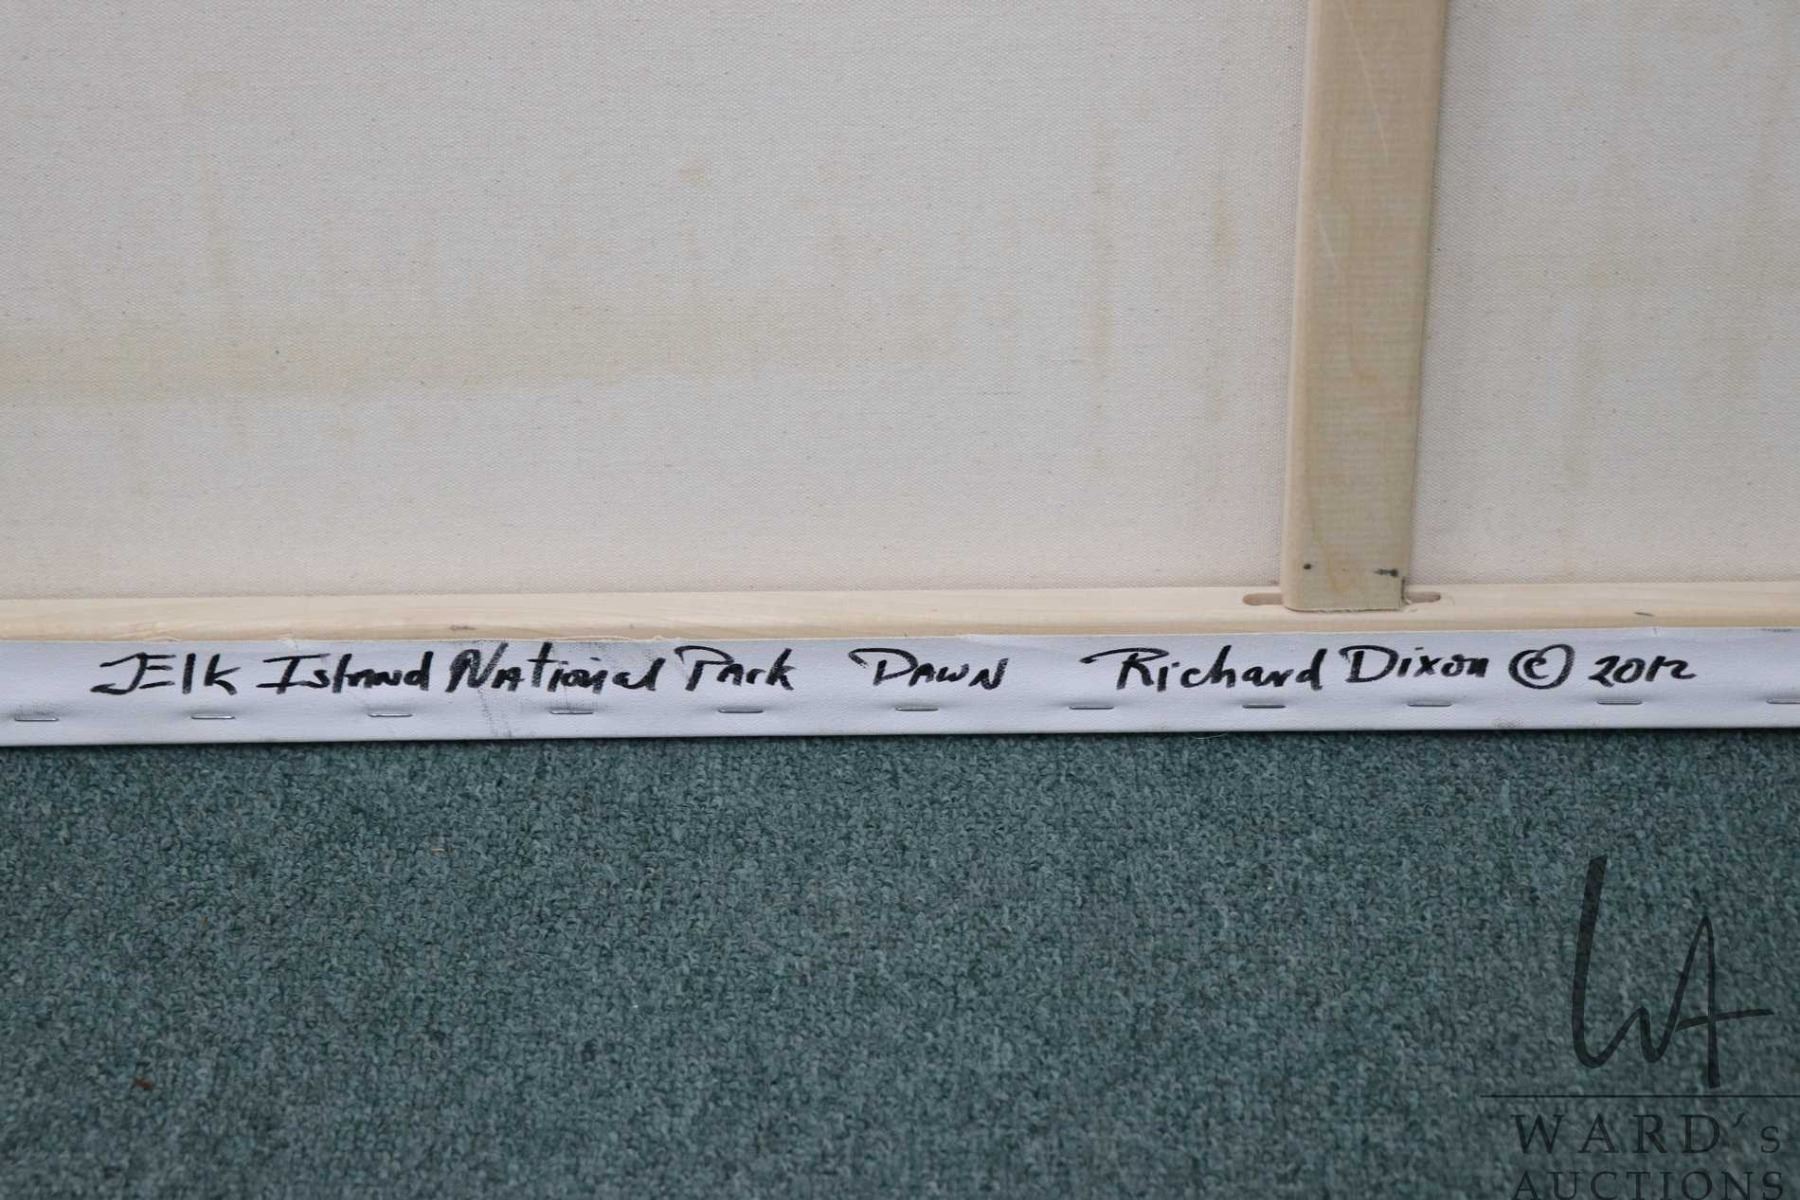 Elk Island National Park Dawn Richard Dixon © 2012
WA
WARD's
AUCTIONS